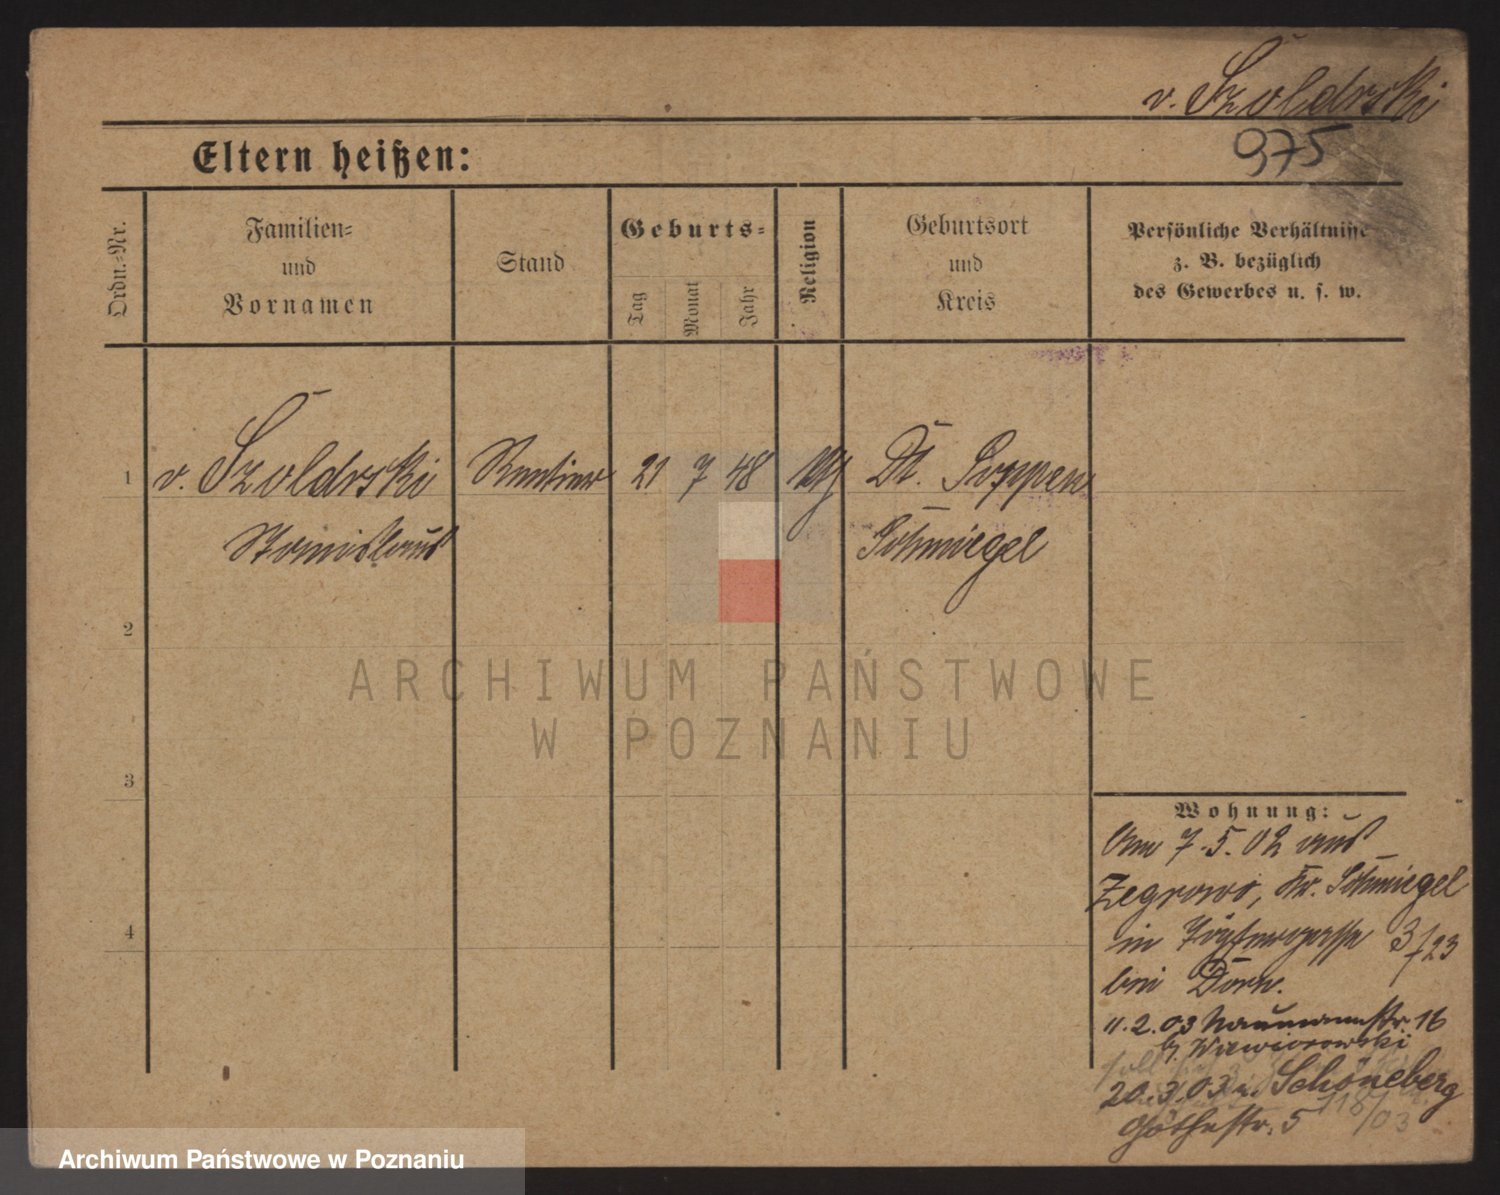 v. Szoldrski
975
Eltern heißen:
Ordn.-Nr.
Familien-
und
Vornamen
Stand
Geburts-
Tag
Monat
Jahr
Religion
Geburtsort
und
Kreis
Persönliche Verhältnisse
z. B. bezüglich
des Gewerbes u. s. w.
1 v. Szoldrski Rentier 21 7 48 Dt. Poppen
Stanislaus Schmiegel
2
ARCHIWUM PAŃSTWOWE
W POZNANIU
3
4
Wohnung:
Am 7.5.02 aus
Zegrowo, Kr. Schmiegel
in Töpfergasse 3/23
bei Dorn.
11.2.03 Naumannstr. 16
b/ Wawiorowski
20.3.03 n. Schöneberg
Göthestr. 5
Archiwum Państwowe w Poznaniu